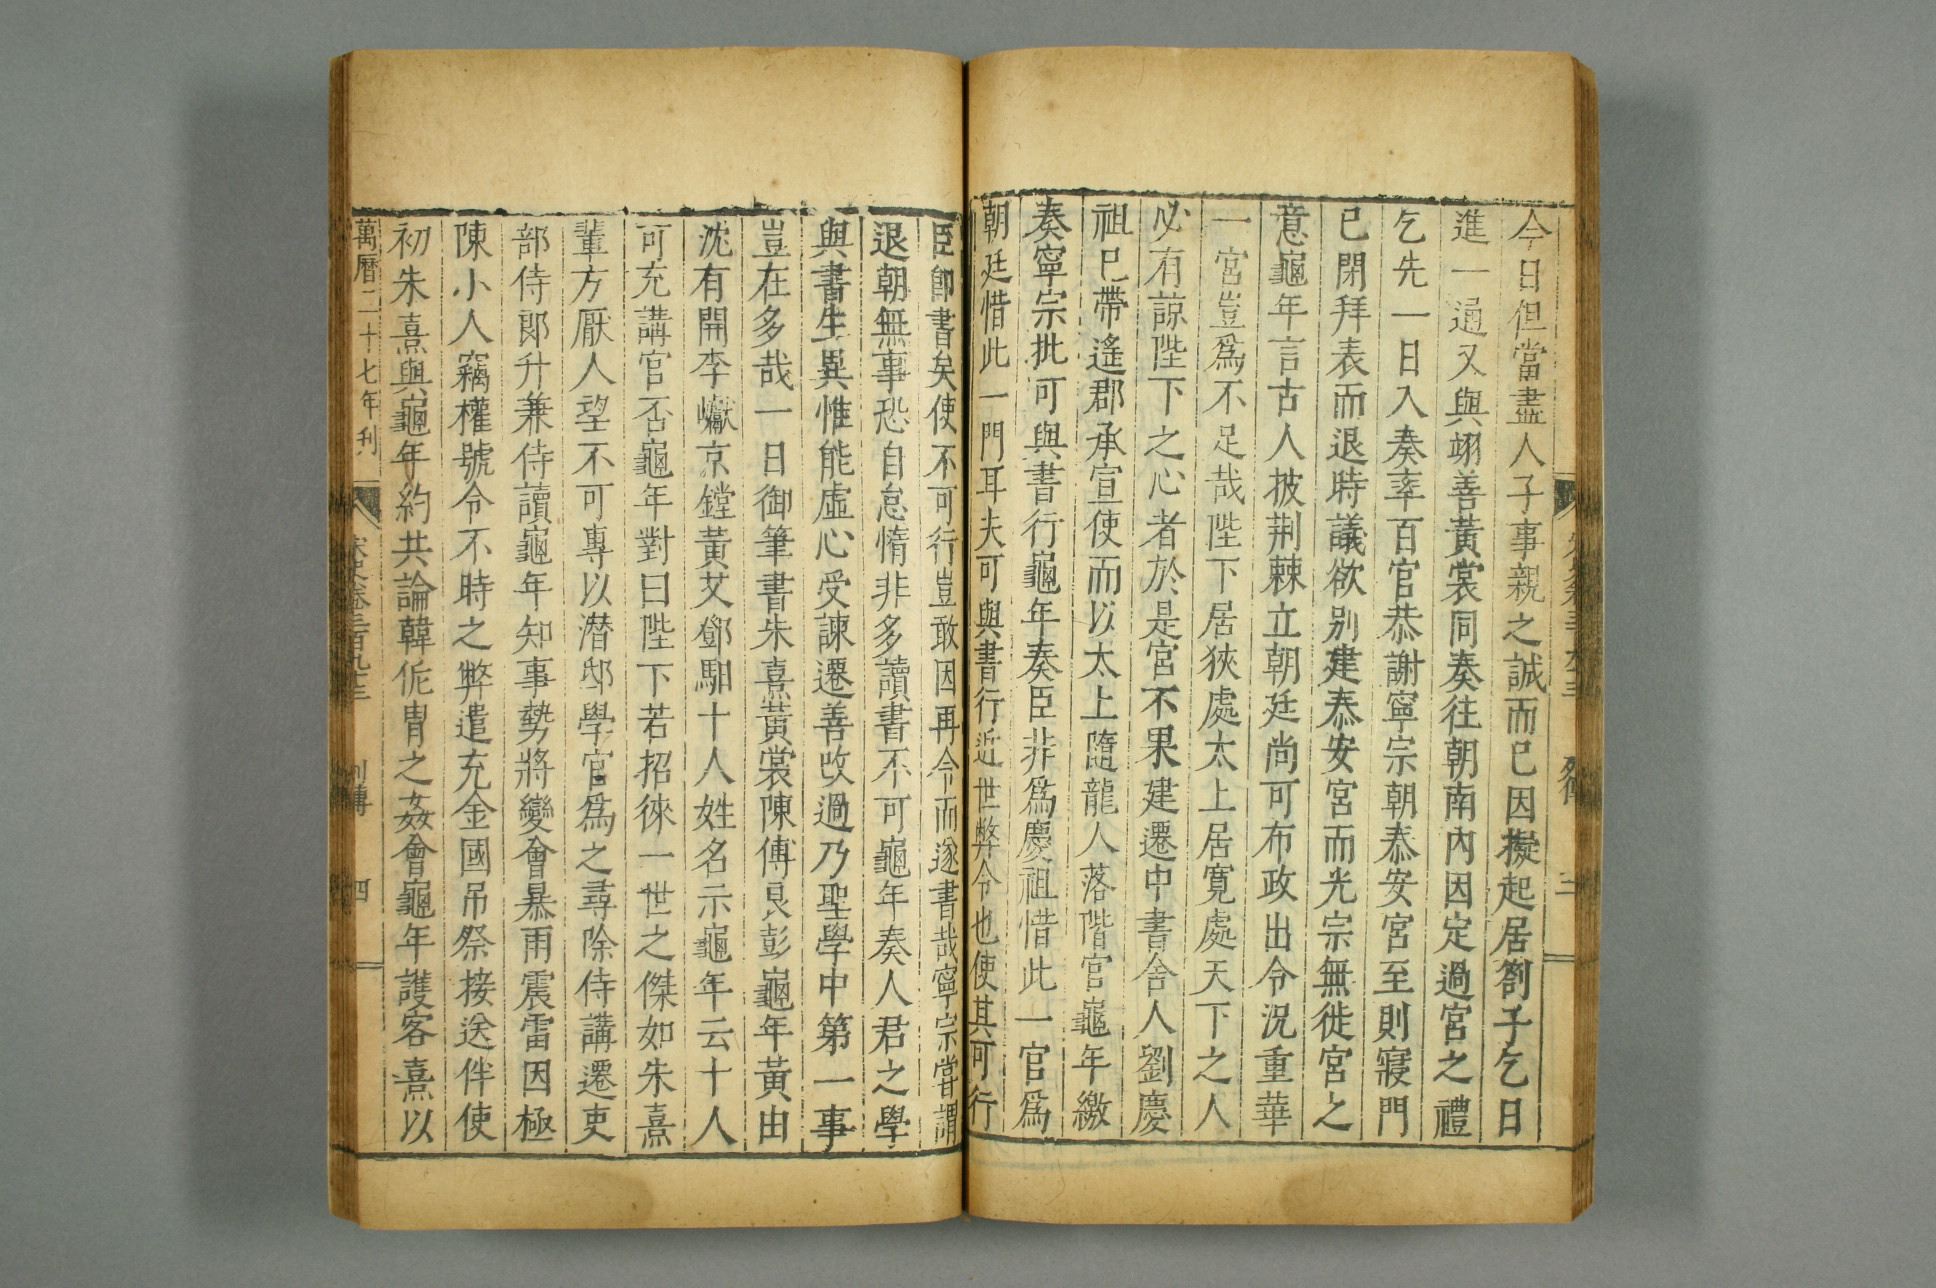 今日但當盡人子事親之誠而已因擬起居劄子乞日
進一通又與翊善黃裳同奏往朝南內因定過宮之禮
乞先一日入奏率百官恭謝寧宗朝泰安宮至則寢門
已閉拜表而退時議欲別建泰安宮而光宗無徙宮之
意龜年言古人披荆棘立朝廷尚可布政出令況重華
一宮豈爲不足哉陛下居狹處太上居寬處天下之人
必有諒陛下之心者於是宮不果建遷中書舍人劉慶
祖已帶遙郡承宣使而以太上隨龍人落階官龜年繳
奏寧宗批可與書行龜年奏臣非爲慶祖惜此一官爲
朝廷惜此一門耳夫可與書行近世弊令也使其可行
臣卽書矣使不可行豈敢因再令而遂書哉寧宗嘗謂
退朝無事恐自怠惰非多讀書不可龜年奏人君之學
與書生異惟能虛心受諫遷善攺過乃聖學中第一事
豈在多哉一日御筆書朱熹黃裳陳傅良彭龜年黃由
沈有開李巘京鏜黃艾鄧馹十人姓名示龜年云十人
可充講官否龜年對曰陛下若招徠一世之傑如朱熹
輩方厭人望不可專以潛邸學官爲之尋除侍講遷吏
部侍郞升兼侍讀龜年知事勢將變會暴雨震雷因極
陳小人竊權號令不時之弊遣充金國吊祭接送伴使
初朱熹與龜年約共論韓侂胄之姦會龜年護客熹以
萬曆二十七年刊
宋史卷三百九十三
列傳
四